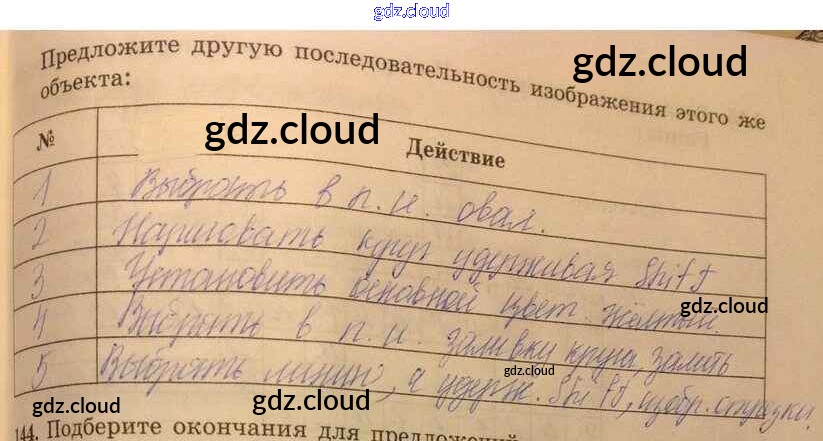 gdz.cloud
Предложите другую последовательность изображения этого же
gdz.cloud
объекта:
№ gdz.cloud Действие
1 Выбрать в п. и. овал.
2 Нарисовать круг удерживая Shift
3 Установить основной цвет жёлтый.
gdz.cloud
4 Выбрать в п. и. заливки круга залить
gdz.cloud
5 Выбрать линию, а удерж. Shift, изобр. отрезки.
gdz.cloud gdz.cloud gdz.cloud
144. Подберите окончания для предложений